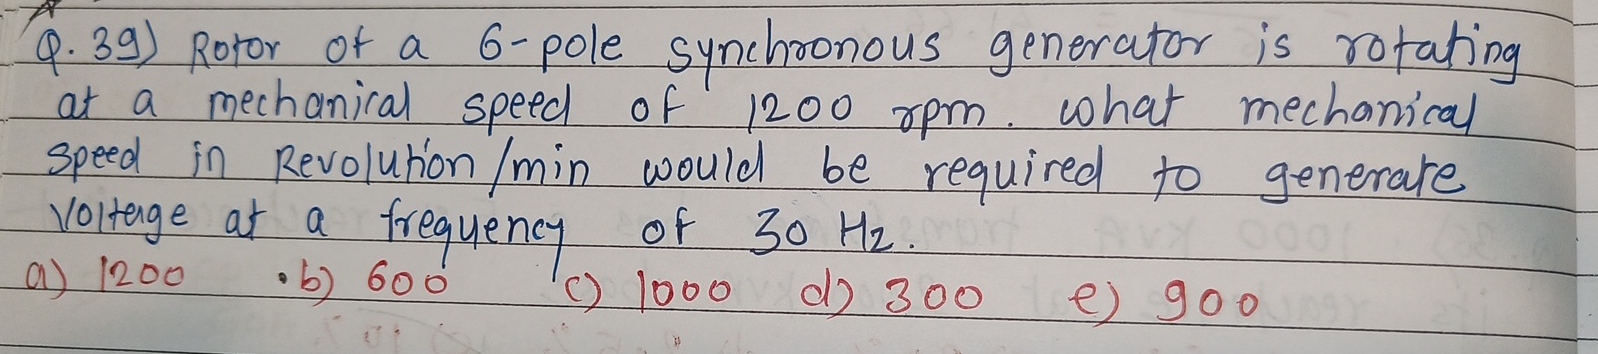 Q. 39) Rotor of a 6-pole synchronous generator is rotating
at a mechanical speed of 1200 rpm. what mechanical
speed in Revolution/min would be required to generate
voltage at a frequency of 30 Hz.
a) 1200 b) 600 c) 1000 d) 300 e) 900